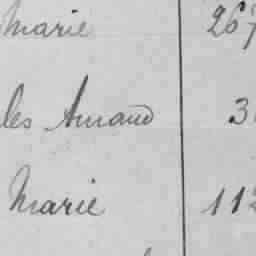 Marie 267
les Amand 3
Marie 112